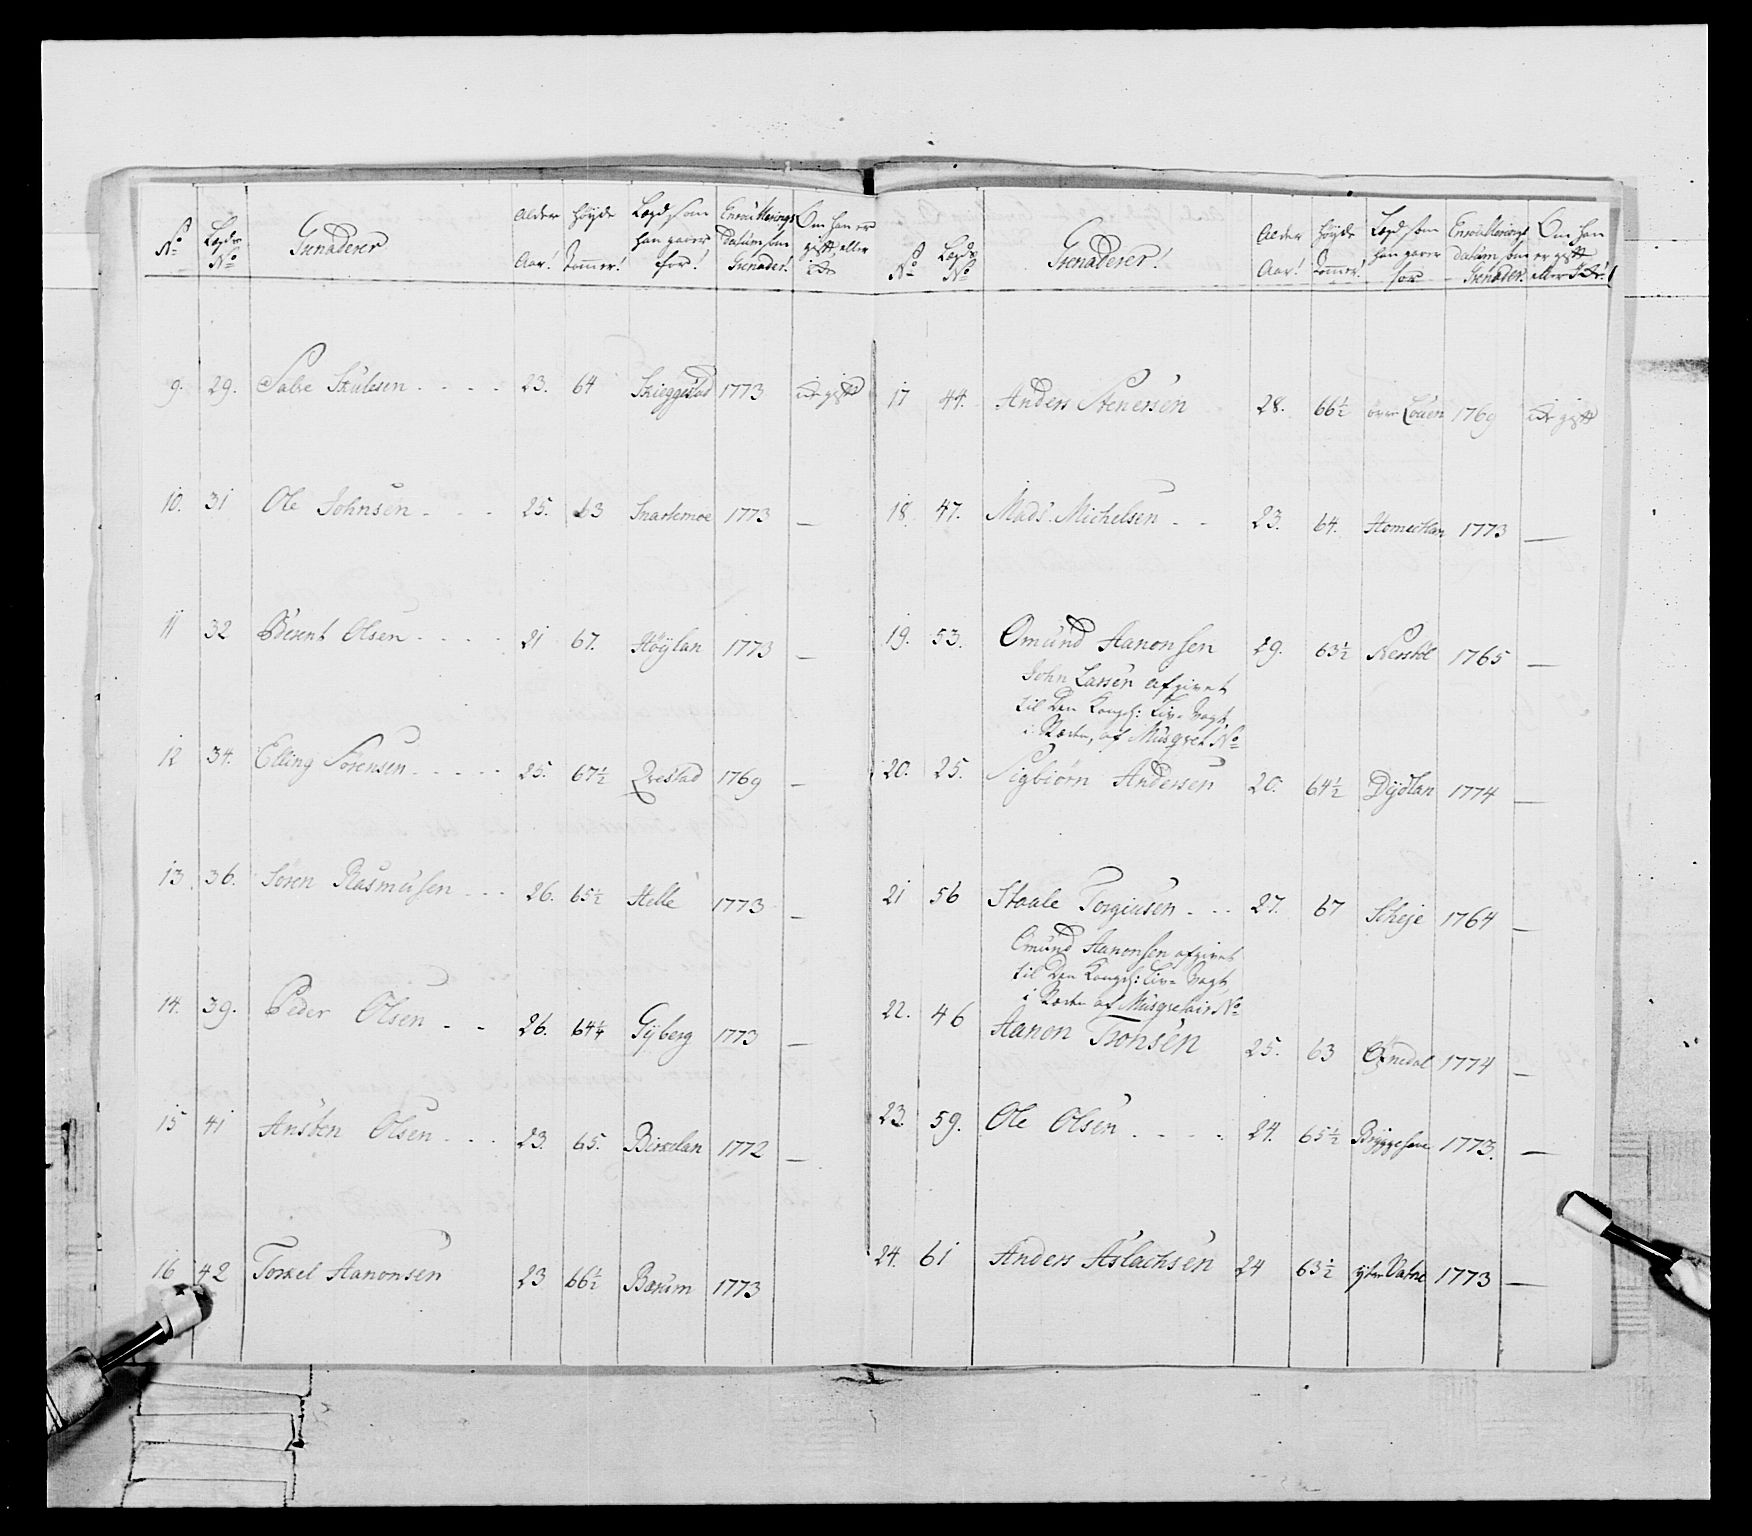 No Lægds No Grenaderer Alder Aar! Høyde Tommer! Lægd som han gaaer for! Enroullerings datum som Grenader! Om han er gift eller icke
9. 29. Salve Skulesen 23. 64 Skieggestad 1773 icke gift
10. 31 Ole Johnsen 25. 63 Snartemoe 1773 —
11 32 Berent Olsen 21 67. Høÿlan 1773 —
12 34. Elling Sørensen 25. 67½ Qvestad 1769 —
13 36. Søren Rasmusen 26. 65½ Helle 1773 —
14. 39. Peder Olsen 26. 64¼ Gÿberg 1773 —
15 41 Ansten Olsen 23. 65. Birkelan 1772 —
16 42 Torkel Aanonsen 23 66½ Bærum 1773
No Lægds No Grenaderer! Alder Aar! Høyde Tommer! Lægd som han gaaer for Enroullerings datum som Grenader. Om han er gift eller icke!
17 44. Anders Stenersen 28. 66½ øvre Løuen 1769 icke gift
18. 47. Mads Michelsen 23. 64. 1773 —
19. 53. Omund Aanonsen 29. 63½ 1765 —
John Larsen afgivet
til Den Kongel: Liv-Vagt
i Stæden, af Musqvet No
20. 25. Sigbiørn Andersen 20. 64½ Dÿdlan 1774 —
21 56 Staale Torgiusen 27. 67 Scheje 1764 —
Omund Aanonsen afgivet
til Den Kongel: Liv-Vagt
i Stæden af Musqvetair No
22. 46 Aanon Tronsen 25. 63 1774 —
23. 59. Ole Olsen 24. 65½ Brÿggesaae 1773. —
24. 61 Anders Aslachsen 24 63½ ÿtre Vatne 1773 —